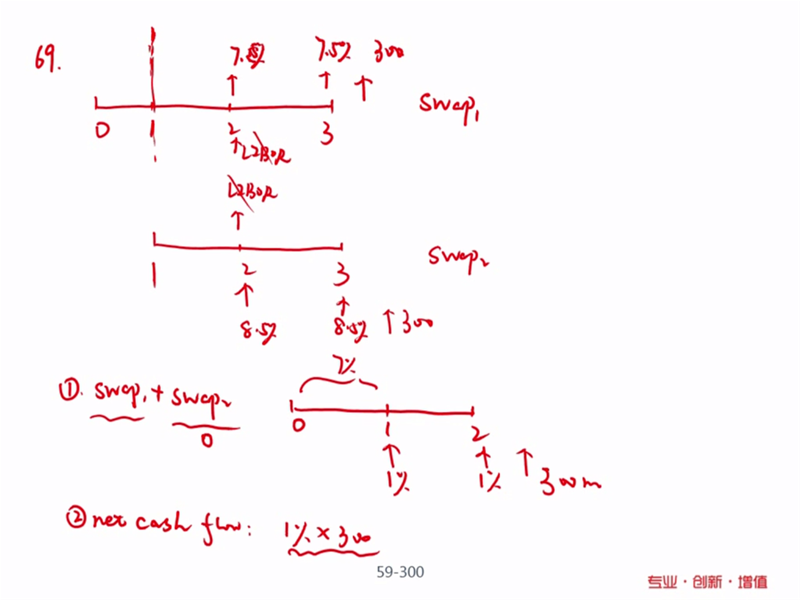 69.
7.5% 7.5% 300
0 1 2 3 Swap₁
LIBOR
LIBOR
1 2 3 Swap₂
8.5% 8.5% 300
7%
①. Swap₁ + Swap₂
0
0 1 2
1% 1% 300m
② net cash flow: 1% × 300
59-300
专业·创新·增值